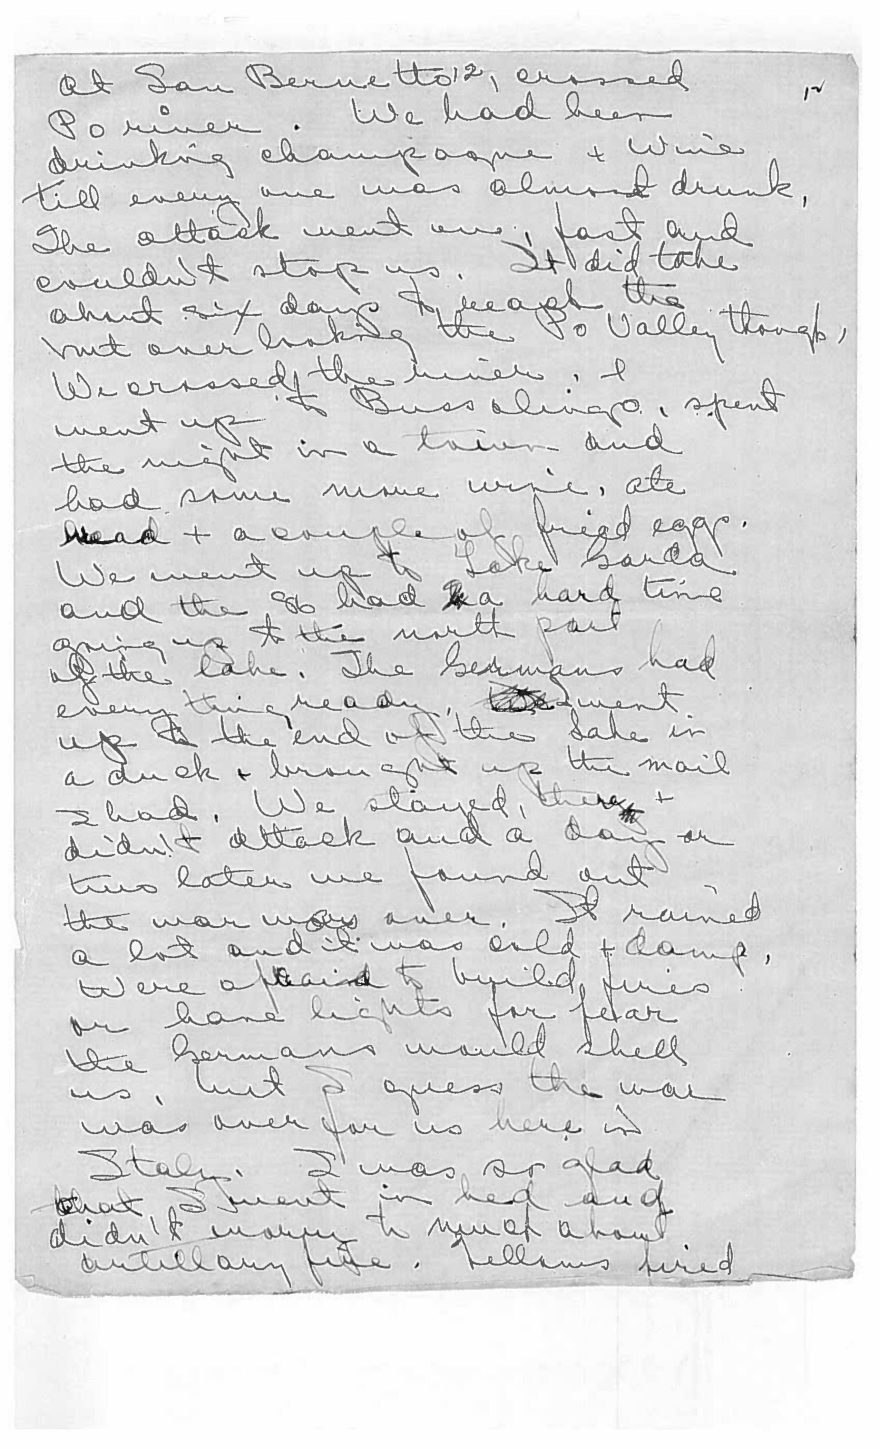 12
at San Bernetto12, crossed
Po river. We had been
drinking champagne + wine
till every one was almost drunk,
The attack went on, fast and
couldn't stop us. It did take
about six days to reach the
but over looking the Po Valley though,
We crossed the river, &
went up to Bussolingo, spent
the night in a town and
had some more wine, ate
bread + a couple of fried eggs.
We went up to Lake Garda
and the 86 had a hard time
going up to the north part
of the lake. The Germans had
every thing ready, I went
up to the end of the lake in
a duck & brought up the mail
I had. We stayed there +
didn't attack and a day or
two later we found out
the war was over. It rained
a lot and it was cold + damp,
Were afraid to build fires
or have lights for fear
the Germans would shell
us, but I guess the war
was over for us here in
Italy. I was so glad
that I went in bed and
didn't worry to much about
artillary fire. Fellows fired